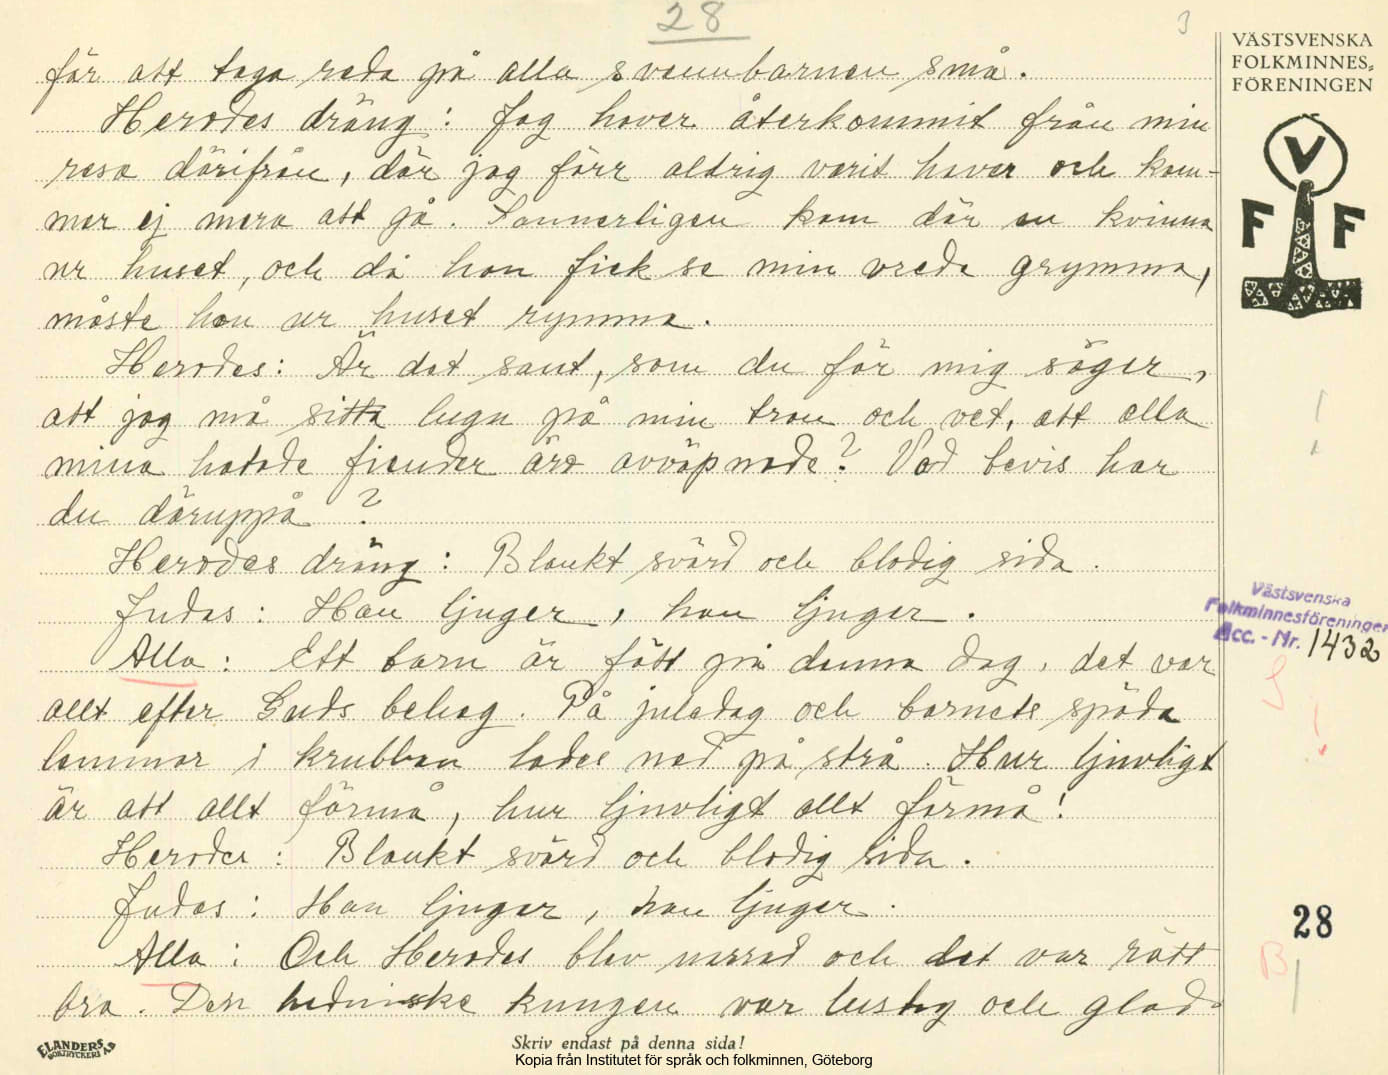 28
3
VÄSTSVENSKA
FOLKMINNES-
FÖRENINGEN
V
F F
för att taga reda på alla svennbarnen små.
Herodes dräng: Jag haver återkommit från min
resa därifrån, där jag förr aldrig varit haver och kom-
mer ej mera att gå. Sannerligen kom där en kvinna
ur huset, och då hon fick se min vrede grymma,
måste hon ur huset rymma.
Herodes: Är det sant, som du för mig säger,
att jag må sitta lugn på min tron och vet, att alla
mina hatade fiender äro avväpnade? Vad bevis har
du däruppå?
Herodes dräng: Blankt svärd och blodig sida.
Judas: Han ljuger, han ljuger.
Alla: Ett barn är fött på denna dag, det var
allt efter Guds behag. På juledag och barnets späda
lemmar i krubban lades ned på strå. Hur ljuvligt
är att allt förmå, hur ljuvligt allt förmå!
Herodes: Blankt svärd och blodig sida.
Judas: Han ljuger, han ljuger.
Alla: Och Herodes blev narrad och det var rätt
bra. Den hedniske kungen var lustig och glad.
Västsvenska
Folkminnesföreningen
Acc. - Nr. 1432
28
B
ELANDERS
BOKTRYCKERI AB
Skriv endast på denna sida!
Kopia från Institutet för språk och folkminnen, Göteborg